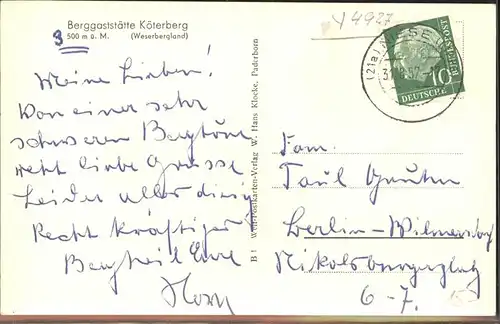 Berggaststätte Köterberg
3 500 m ü. M. (Weserbergland)
Y 4927
Meine Lieben!
Von einer sehr
schweren Bergtour
liebe Grüsse
Leider alles diesig
Recht kräftiger
Bergheil Eure
B 1 Welt-Postkarten-Verlag W. Hans Klocke, Paderborn
(21a)
10
DEUTSCHE
BUNDESPOST
Fam.
Paul
Berlin-Wilmersdorf
Nikolsburgerplatz
6-7.